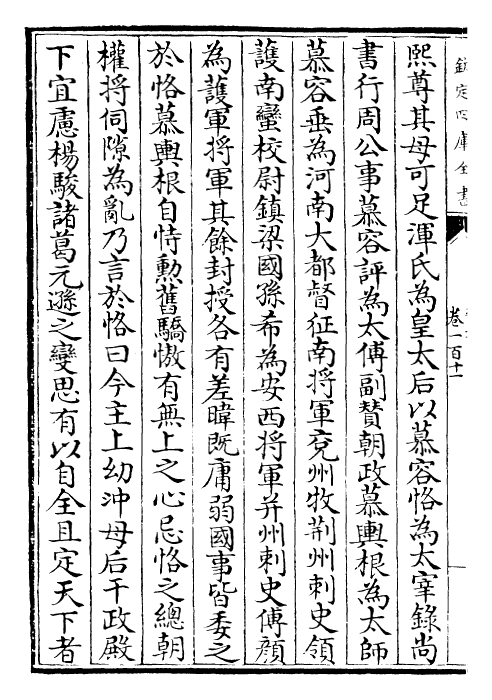 欽定四庫全書
卷一百十一
熙尊其母可足渾氏為皇太后以慕容恪為太宰錄尚
書行周公事慕容評為太傅副贊朝政慕輿根為太師
慕容垂為河南大都督征南將軍兗州牧荆州刺史領
護南蠻校尉鎮梁國孫希為安西將軍并州刺史傅顔
為護軍將軍其餘封授各有差暐既庸弱國事皆委之
於恪慕輿根自恃勲舊驕慠有無上之心忌恪之總朝
權将伺隙為亂乃言於恪曰今主上幼沖母后干政殿
下宜慮楊駿諸葛元遜之變思有以自全且定天下者